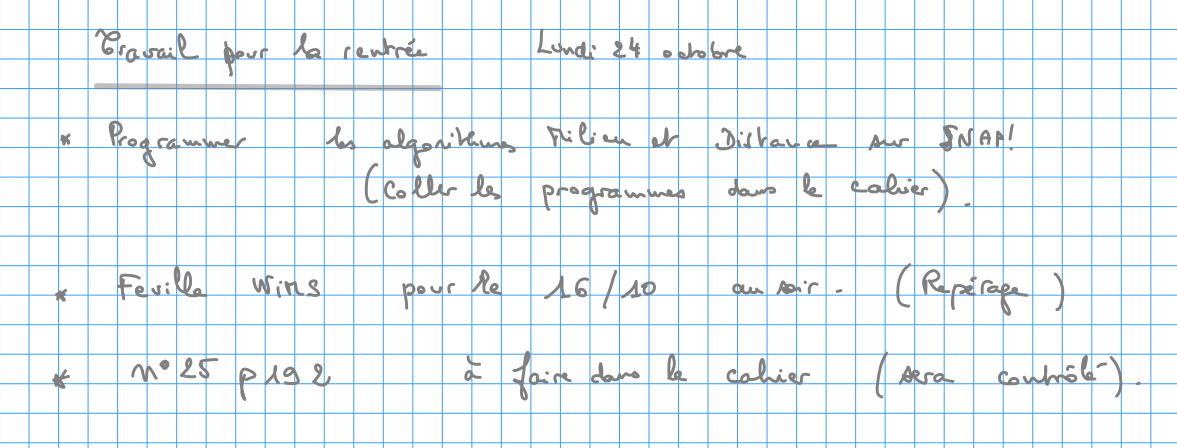 Travail pour la rentrée Lundi 24 octobre
* Programmer les algorithmes Milieu et Distance sur SNAP!
(Coller les programmes dans le cahier).
* Feuille WIMS pour le 16/10 au soir. (Repérage)
* n°25 p 192 à faire dans le cahier (sera contrôlé).